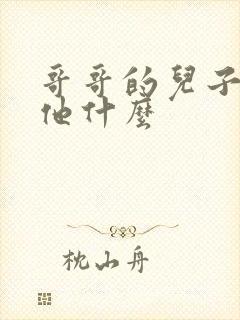 哥哥的兒子
他什麼
枕山舟